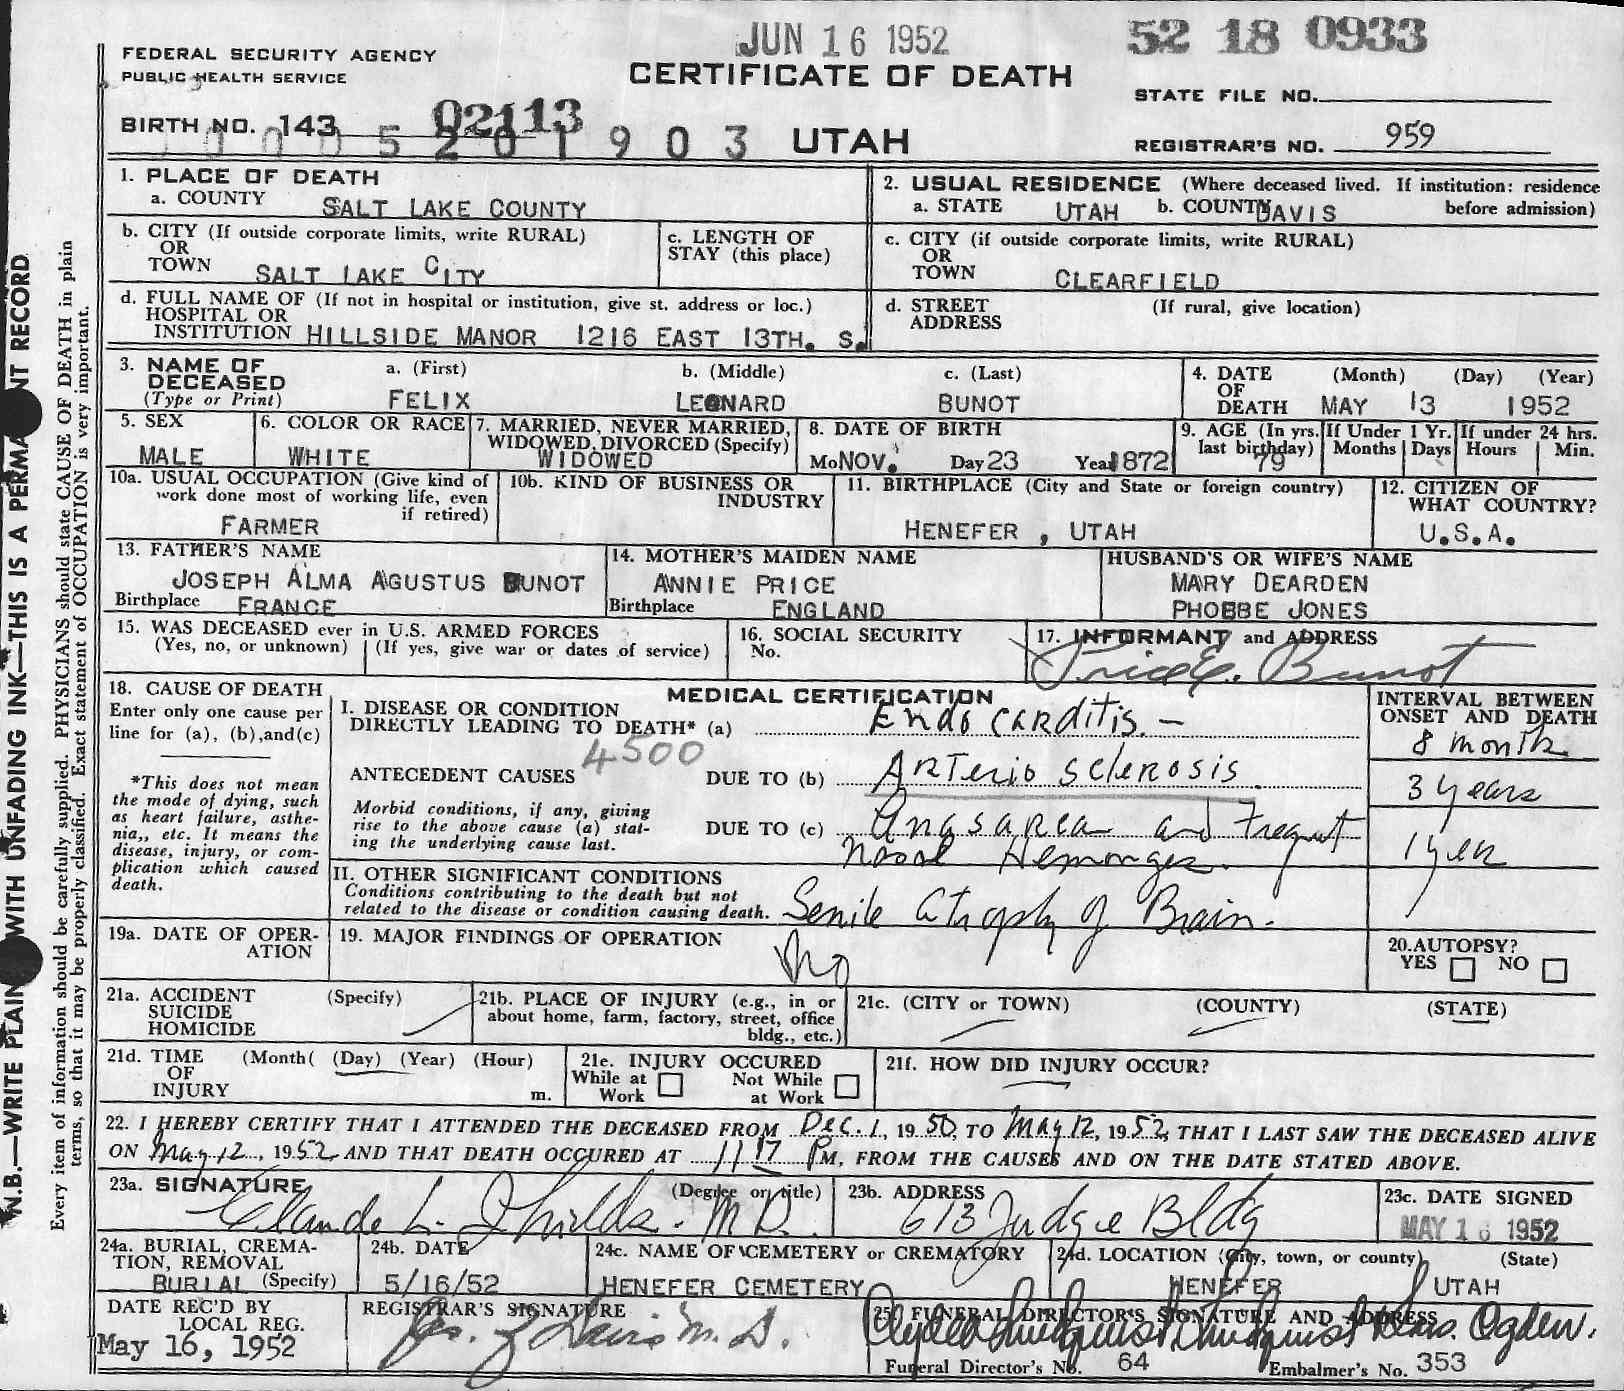 JUN 16 1952
52 18 0933
FEDERAL SECURITY AGENCY
PUBLIC HEALTH SERVICE
CERTIFICATE OF DEATH
STATE FILE NO.
BIRTH NO. 143
02113
5 2 0 1 9 0 3
UTAH
REGISTRAR'S NO. 959
N.B.—WRITE PLAIN WITH UNFADING INK—THIS IS A PERMA NT RECORD
Every item of information should be carefully supplied. PHYSICIANS should state CAUSE OF DEATH in plain
terms, so that it may be properly classified. Exact statement of OCCUPATION is very important.
1. PLACE OF DEATH
a. COUNTY SALT LAKE COUNTY
2. USUAL RESIDENCE (Where deceased lived. If institution: residence
a. STATE UTAH b. COUNTY DAVIS before admission)
b. CITY (If outside corporate limits, write RURAL)
OR
TOWN SALT LAKE CITY
c. LENGTH OF
STAY (this place)
c. CITY (if outside corporate limits, write RURAL)
OR
TOWN CLEARFIELD
d. FULL NAME OF (If not in hospital or institution, give st. address or loc.)
HOSPITAL OR
INSTITUTION HILLSIDE MANOR 1216 EAST 13TH. S.
d. STREET (If rural, give location)
ADDRESS
3. NAME OF
DECEASED
(Type or Print)
a. (First) b. (Middle) c. (Last)
FELIX LEONARD BUNOT
4. DATE (Month) (Day) (Year)
OF
DEATH MAY 13 1952
5. SEX
MALE
6. COLOR OR RACE
WHITE
7. MARRIED, NEVER MARRIED,
WIDOWED, DIVORCED (Specify)
WIDOWED
8. DATE OF BIRTH
Mo NOV. Day 23 Year 1872
9. AGE (In yrs.
last birthday)
79
If Under 1 Yr.
Months Days
If under 24 hrs.
Hours Min.
10a. USUAL OCCUPATION (Give kind of
work done most of working life, even
if retired)
FARMER
10b. KIND OF BUSINESS OR
INDUSTRY
11. BIRTHPLACE (City and State or foreign country)
HENEFER , UTAH
12. CITIZEN OF
WHAT COUNTRY?
U.S.A.
13. FATHER'S NAME
JOSEPH ALMA AGUSTUS BUNOT
Birthplace FRANCE
14. MOTHER'S MAIDEN NAME
ANNIE PRICE
Birthplace ENGLAND
HUSBAND'S OR WIFE'S NAME
MARY DEARDEN
PHOEBE JONES
15. WAS DECEASED ever in U.S. ARMED FORCES
(Yes, no, or unknown) (If yes, give war or dates of service)
16. SOCIAL SECURITY
No.
17. INFORMANT and ADDRESS
Bunot
18. CAUSE OF DEATH
Enter only one cause per
line for (a), (b), and (c)
*This does not mean
the mode of dying, such
as heart failure, asthe-
nia,, etc. It means the
disease, injury, or com-
plication which caused
death.
MEDICAL CERTIFICATION
I. DISEASE OR CONDITION
DIRECTLY LEADING TO DEATH* (a) Endo carditis. –
4500
ANTECEDENT CAUSES DUE TO (b) Arterio sclerosis
Morbid conditions, if any, giving
rise to the above cause (a) stat-
ing the underlying cause last.
DUE TO (c) Anasarca and Frequt
nasal Hemorages.
INTERVAL BETWEEN
ONSET AND DEATH
8 month
3 years
1 year
II. OTHER SIGNIFICANT CONDITIONS
Conditions contributing to the death but not
related to the disease or condition causing death. Senile atrophy of Brain.
19a. DATE OF OPER-
ATION
19. MAJOR FINDINGS OF OPERATION
No
20. AUTOPSY?
YES NO
21a. ACCIDENT (Specify)
SUICIDE
HOMICIDE
21b. PLACE OF INJURY (e.g., in or
about home, farm, factory, street, office
bldg., etc.)
21c. (CITY or TOWN) (COUNTY) (STATE)
21d. TIME (Month( (Day) (Year) (Hour)
OF
INJURY m.
21e. INJURY OCCURED
While at Work Not While at Work
21f. HOW DID INJURY OCCUR?
22. I HEREBY CERTIFY THAT I ATTENDED THE DECEASED FROM Dec. 1, 1950, TO May 12, 1952, THAT I LAST SAW THE DECEASED ALIVE
ON May 12, 1952, AND THAT DEATH OCCURED AT 11 17 PM, FROM THE CAUSES AND ON THE DATE STATED ABOVE.
23a. SIGNATURE (Degree or title)
Claude L. Shields. M.D.
23b. ADDRESS
613 Judge Bldg
23c. DATE SIGNED
MAY 16 1952
24a. BURIAL, CREMA-
TION, REMOVAL
BURIAL (Specify)
24b. DATE
5/16/52
24c. NAME OF CEMETERY or CREMATORY
HENEFER CEMETERY
24d. LOCATION (City, town, or county) (State)
HENEFER UTAH
DATE REC'D BY
LOCAL REG.
May 16, 1952
REGISTRAR'S SIGNATURE
M.D.
25. FUNERAL DIRECTOR'S SIGNATURE AND ADDRESS
Ogden.
Funeral Director's No. 64 Embalmer's No. 353